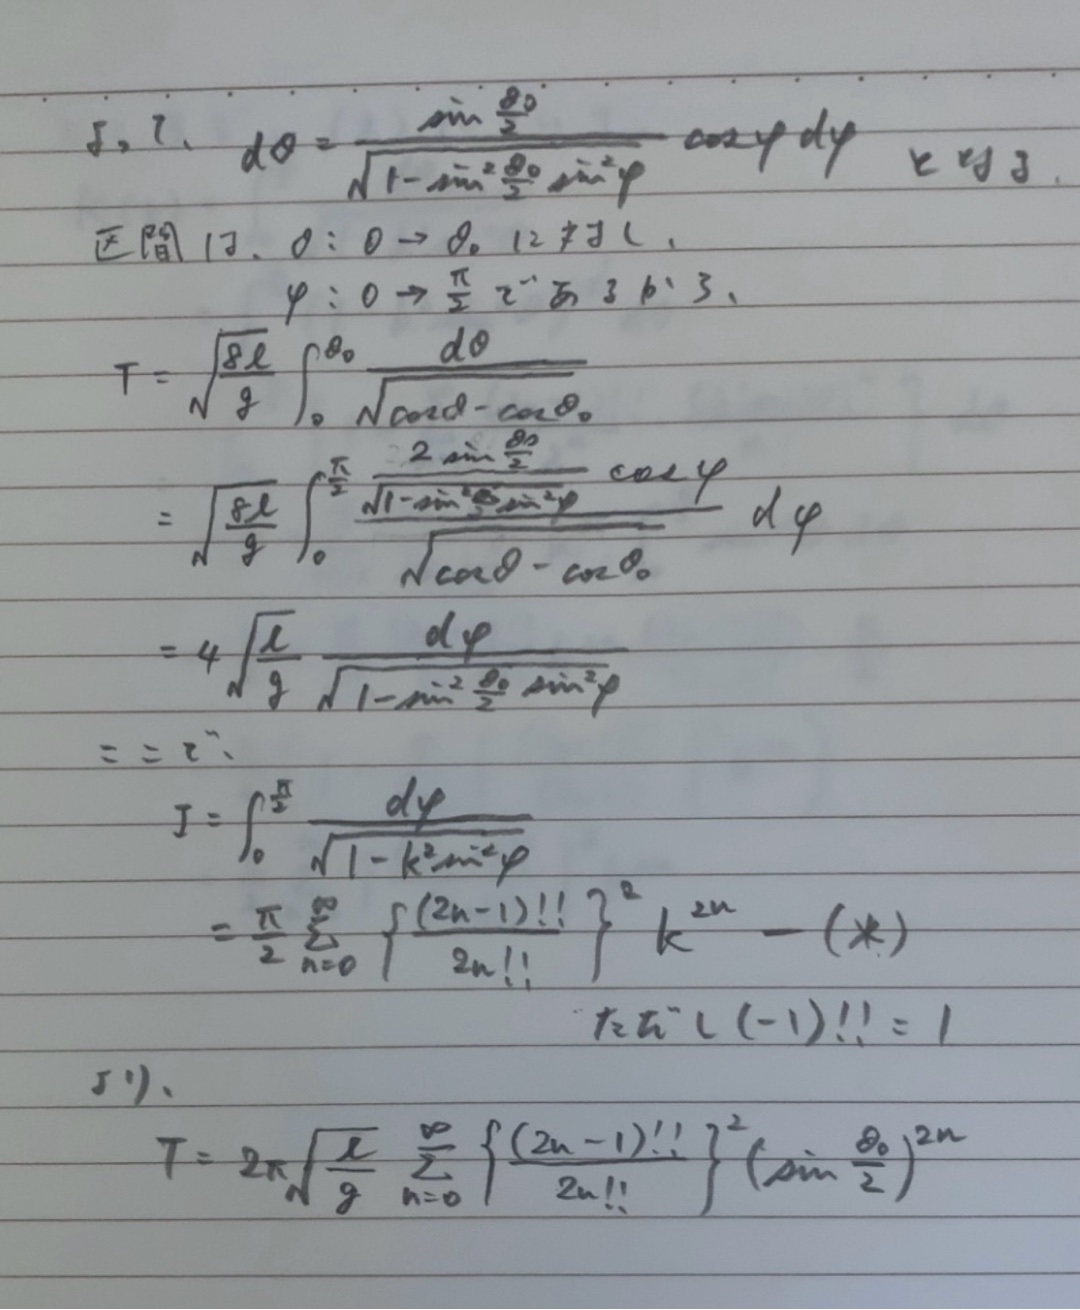 よって、 dθ = \frac{sin \frac{θ0}{2}}{\sqrt{1-sin² \frac{θ0}{2} sin²φ}} cosφ dφ となる.
区間は、θ : 0 → θ₀ に対し、
φ : 0 → \frac{π}{2} であるから、
T = \sqrt{\frac{8l}{g}} ∫_0^{θ₀} \frac{dθ}{\sqrt{cosθ - cosθ₀}}
= \sqrt{\frac{8l}{g}} ∫_0^{\frac{π}{2}} \frac{\frac{2 sin \frac{θ0}{2}}{\sqrt{1-sin² \frac{θ0}{2} sin²φ}} cosφ}{\sqrt{cosθ - cosθ₀}} dφ
= 4 \sqrt{\frac{l}{g}} \frac{dφ}{\sqrt{1-sin² \frac{θ0}{2} sin²φ}}
ここで、
I = ∫_0^{\frac{π}{2}} \frac{dφ}{\sqrt{1-k² sin²φ}}
= \frac{π}{2} \sum_{n=0}^{∞} \left\{ \frac{(2n-1)!!}{2n!!} \right\}^2 k^{2n} — (*)
ただし (-1)!! = 1
より、
T = 2π \sqrt{\frac{l}{g}} \sum_{n=0}^{∞} \left\{ \frac{(2n-1)!!}{2n!!} \right\}^2 (sin \frac{θ₀}{2})^{2n}